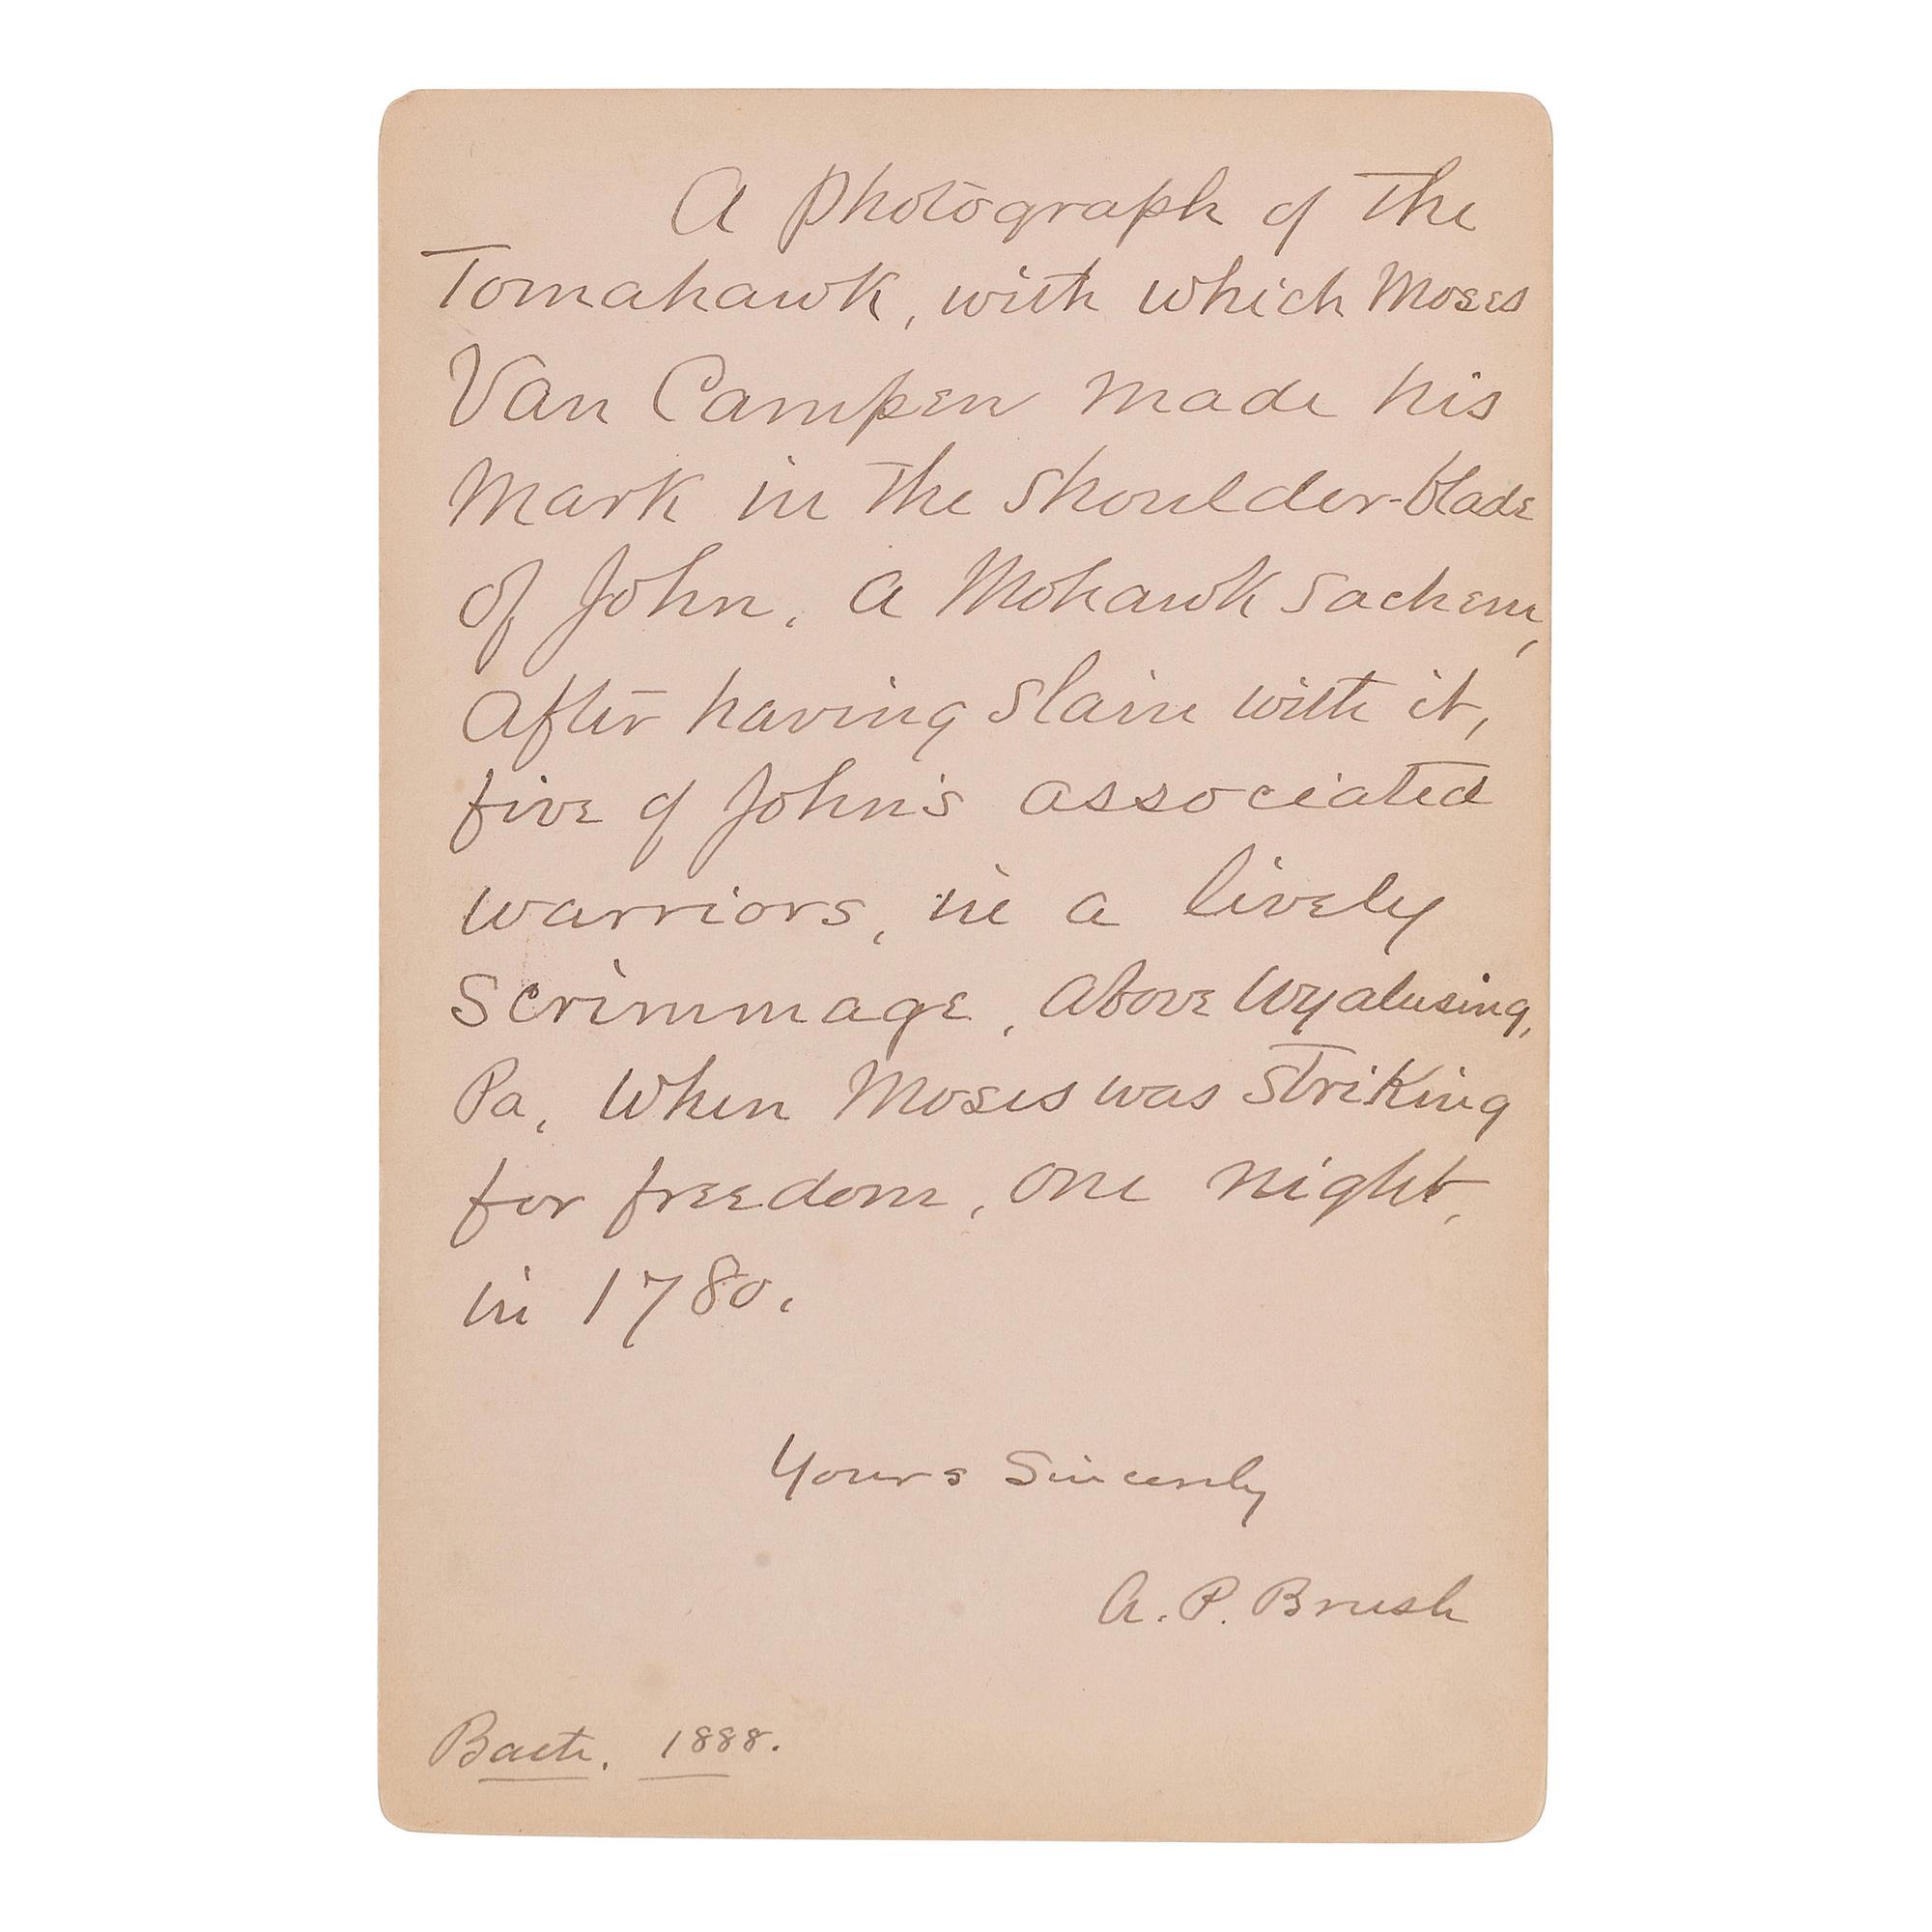 A photograph of the
Tomahawk, with which Moses
Van Campen made his
mark in the shoulder-blade
of John, a Mohawk Sachem,
after having slain with it,
five of John's associated
warriors, in a lively
Scrimmage, above Wyalusing,
Pa, when Moses was striking
for freedom, one night,
in 1780.
Yours Sincerely
A. P. Brush
1888.